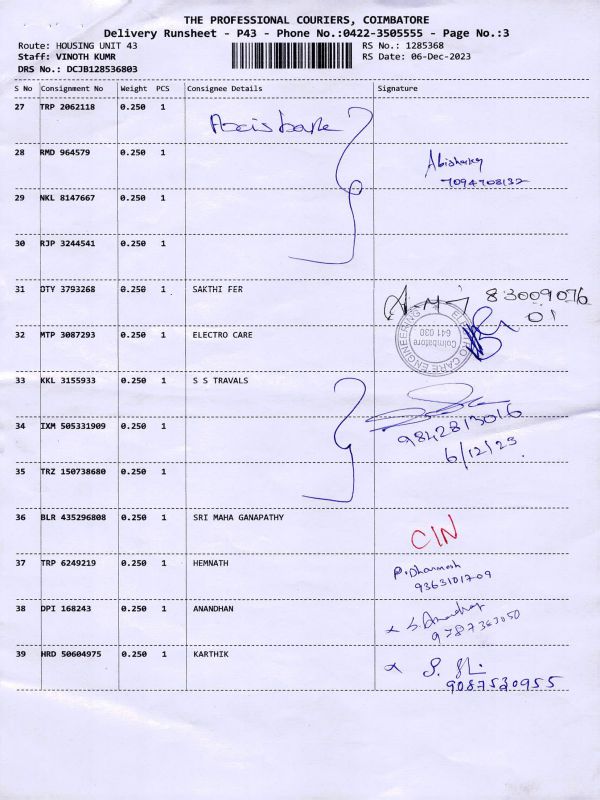 THE PROFESSIONAL COURIERS, COIMBATORE
Delivery Runsheet - P43 - Phone No.:0422-3505555 - Page No.:3
Route: HOUSING UNIT 43 RS No.: 1285368
Staff: VINOTH KUMR RS Date: 06-Dec-2023
DRS No.: DCJB128536803
S No Consignment No Weight PCS Consignee Details Signature
27 TRP 2062118 0.250 1 Axis bank
28 RMD 964579 0.250 1
7094708132
29 NKL 8147667 0.250 1
30 RJP 3244541 0.250 1
31 OTY 3793268 0.250 1 SAKTHI FER 83009076
01
32 MTP 3087293 0.250 1 ELECTRO CARE
ELECTRO CARE ENGINEERING
Coimbatore
641 030
33 KKL 3155933 0.250 1 S S TRAVALS
9842813016
34 IXM 505331909 0.250 1
6/12/23
35 TRZ 150738680 0.250 1
36 BLR 435296808 0.250 1 SRI MAHA GANAPATHY C/N
37 TRP 6249219 0.250 1 HEMNATH P. Dharmesh
9363101709
38 DPI 168243 0.250 1 ANANDHAN x S. Anandhan
9787363050
39 HRD 50604975 0.250 1 KARTHIK x
9087530955